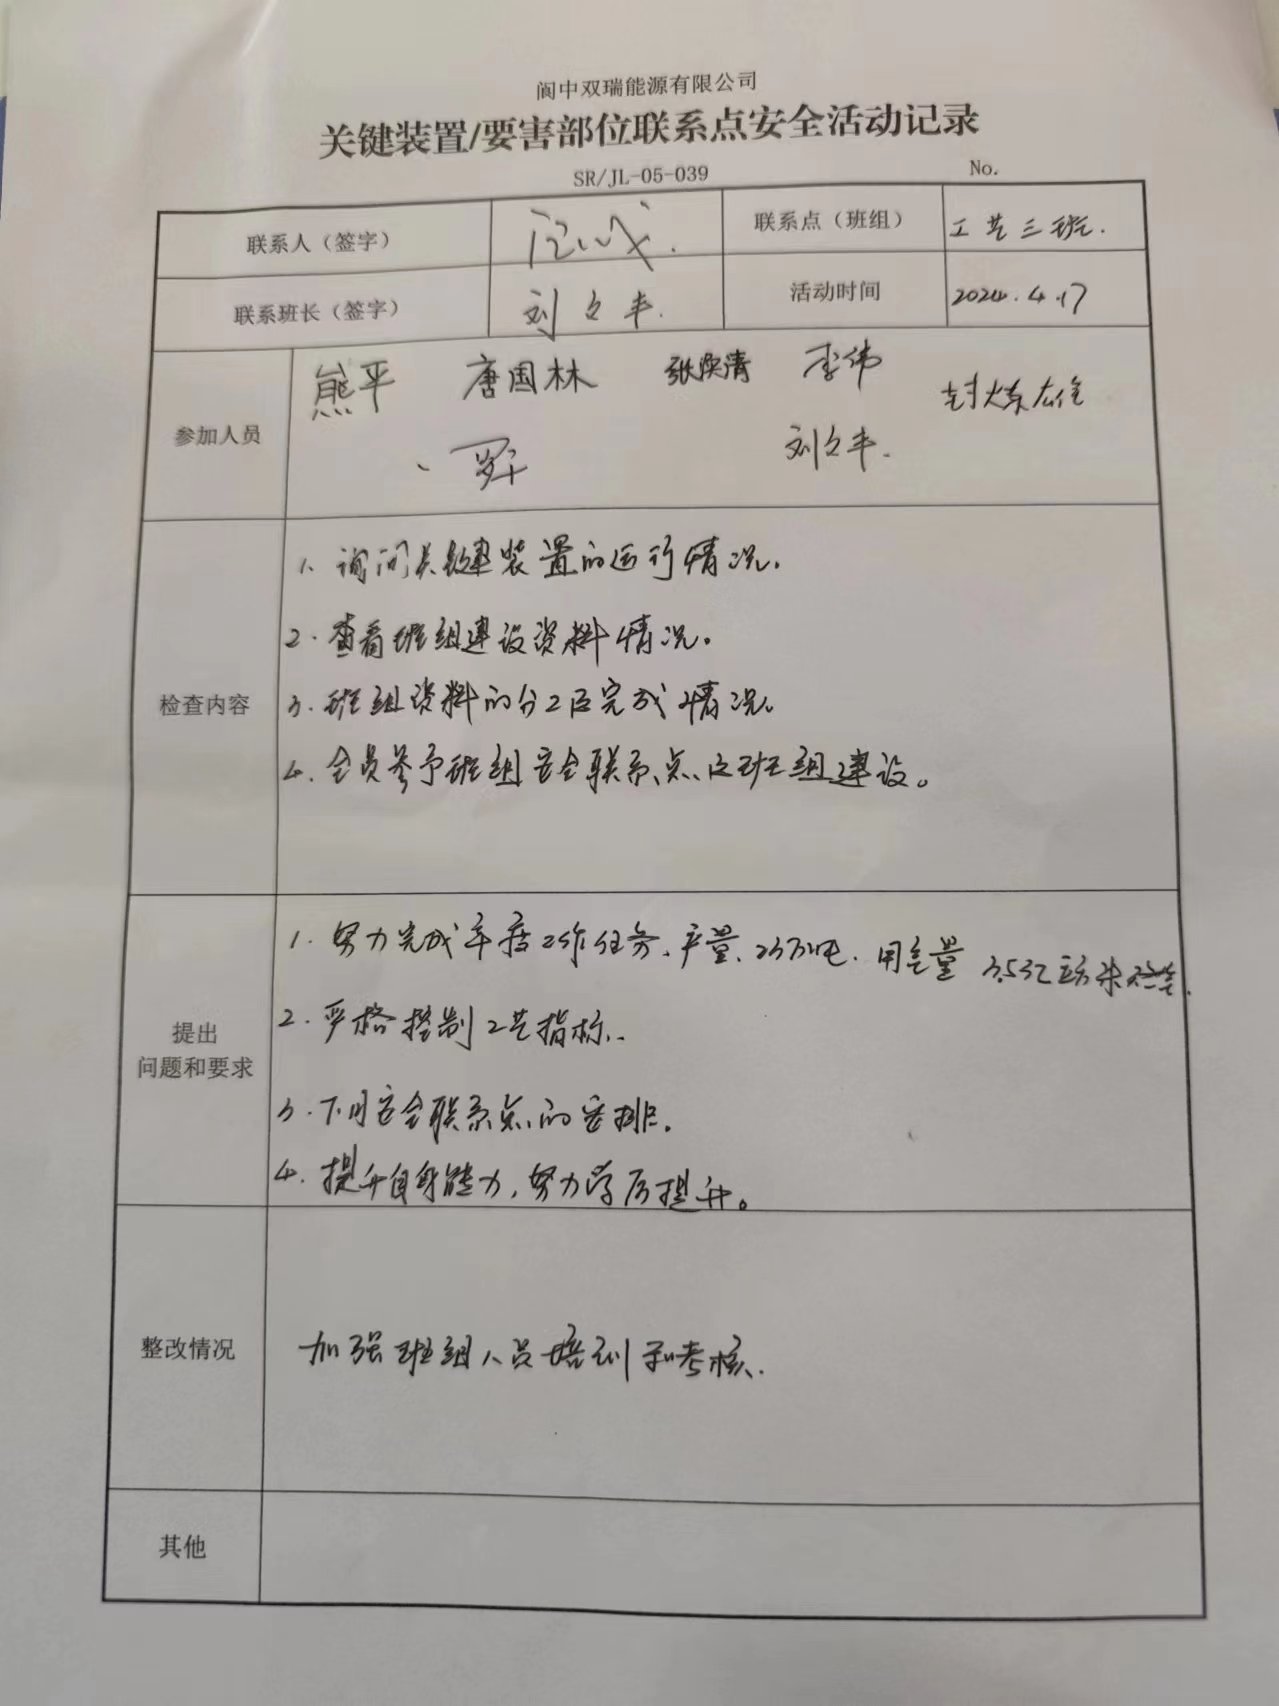 阆中双瑞能源有限公司
关键装置/要害部位联系点安全活动记录
SR/JL-05-039 No.
联系人（签字） 联系点（班组） 工艺三班.
联系班长（签字） 刘文丰. 活动时间 2024.4.17
参加人员 熊平 唐国林 张焕清 李伟 封炼雄
刘文丰.
检查内容
1、询问关键装置的运行情况。
2.查看班组建设资料情况。
3.班组资料的分工及完成情况。
4.全员参予班组安全联系点及班组建设。
提出
问题和要求
1.努力完成年度工作任务,产量、23万吨.用气量 3.5亿立方米
2.严格控制工艺指标.
3.下月安全联系点的安排.
4.提升自身能力,努力学历提升。
整改情况 加强班组人员培训和考核.
其他